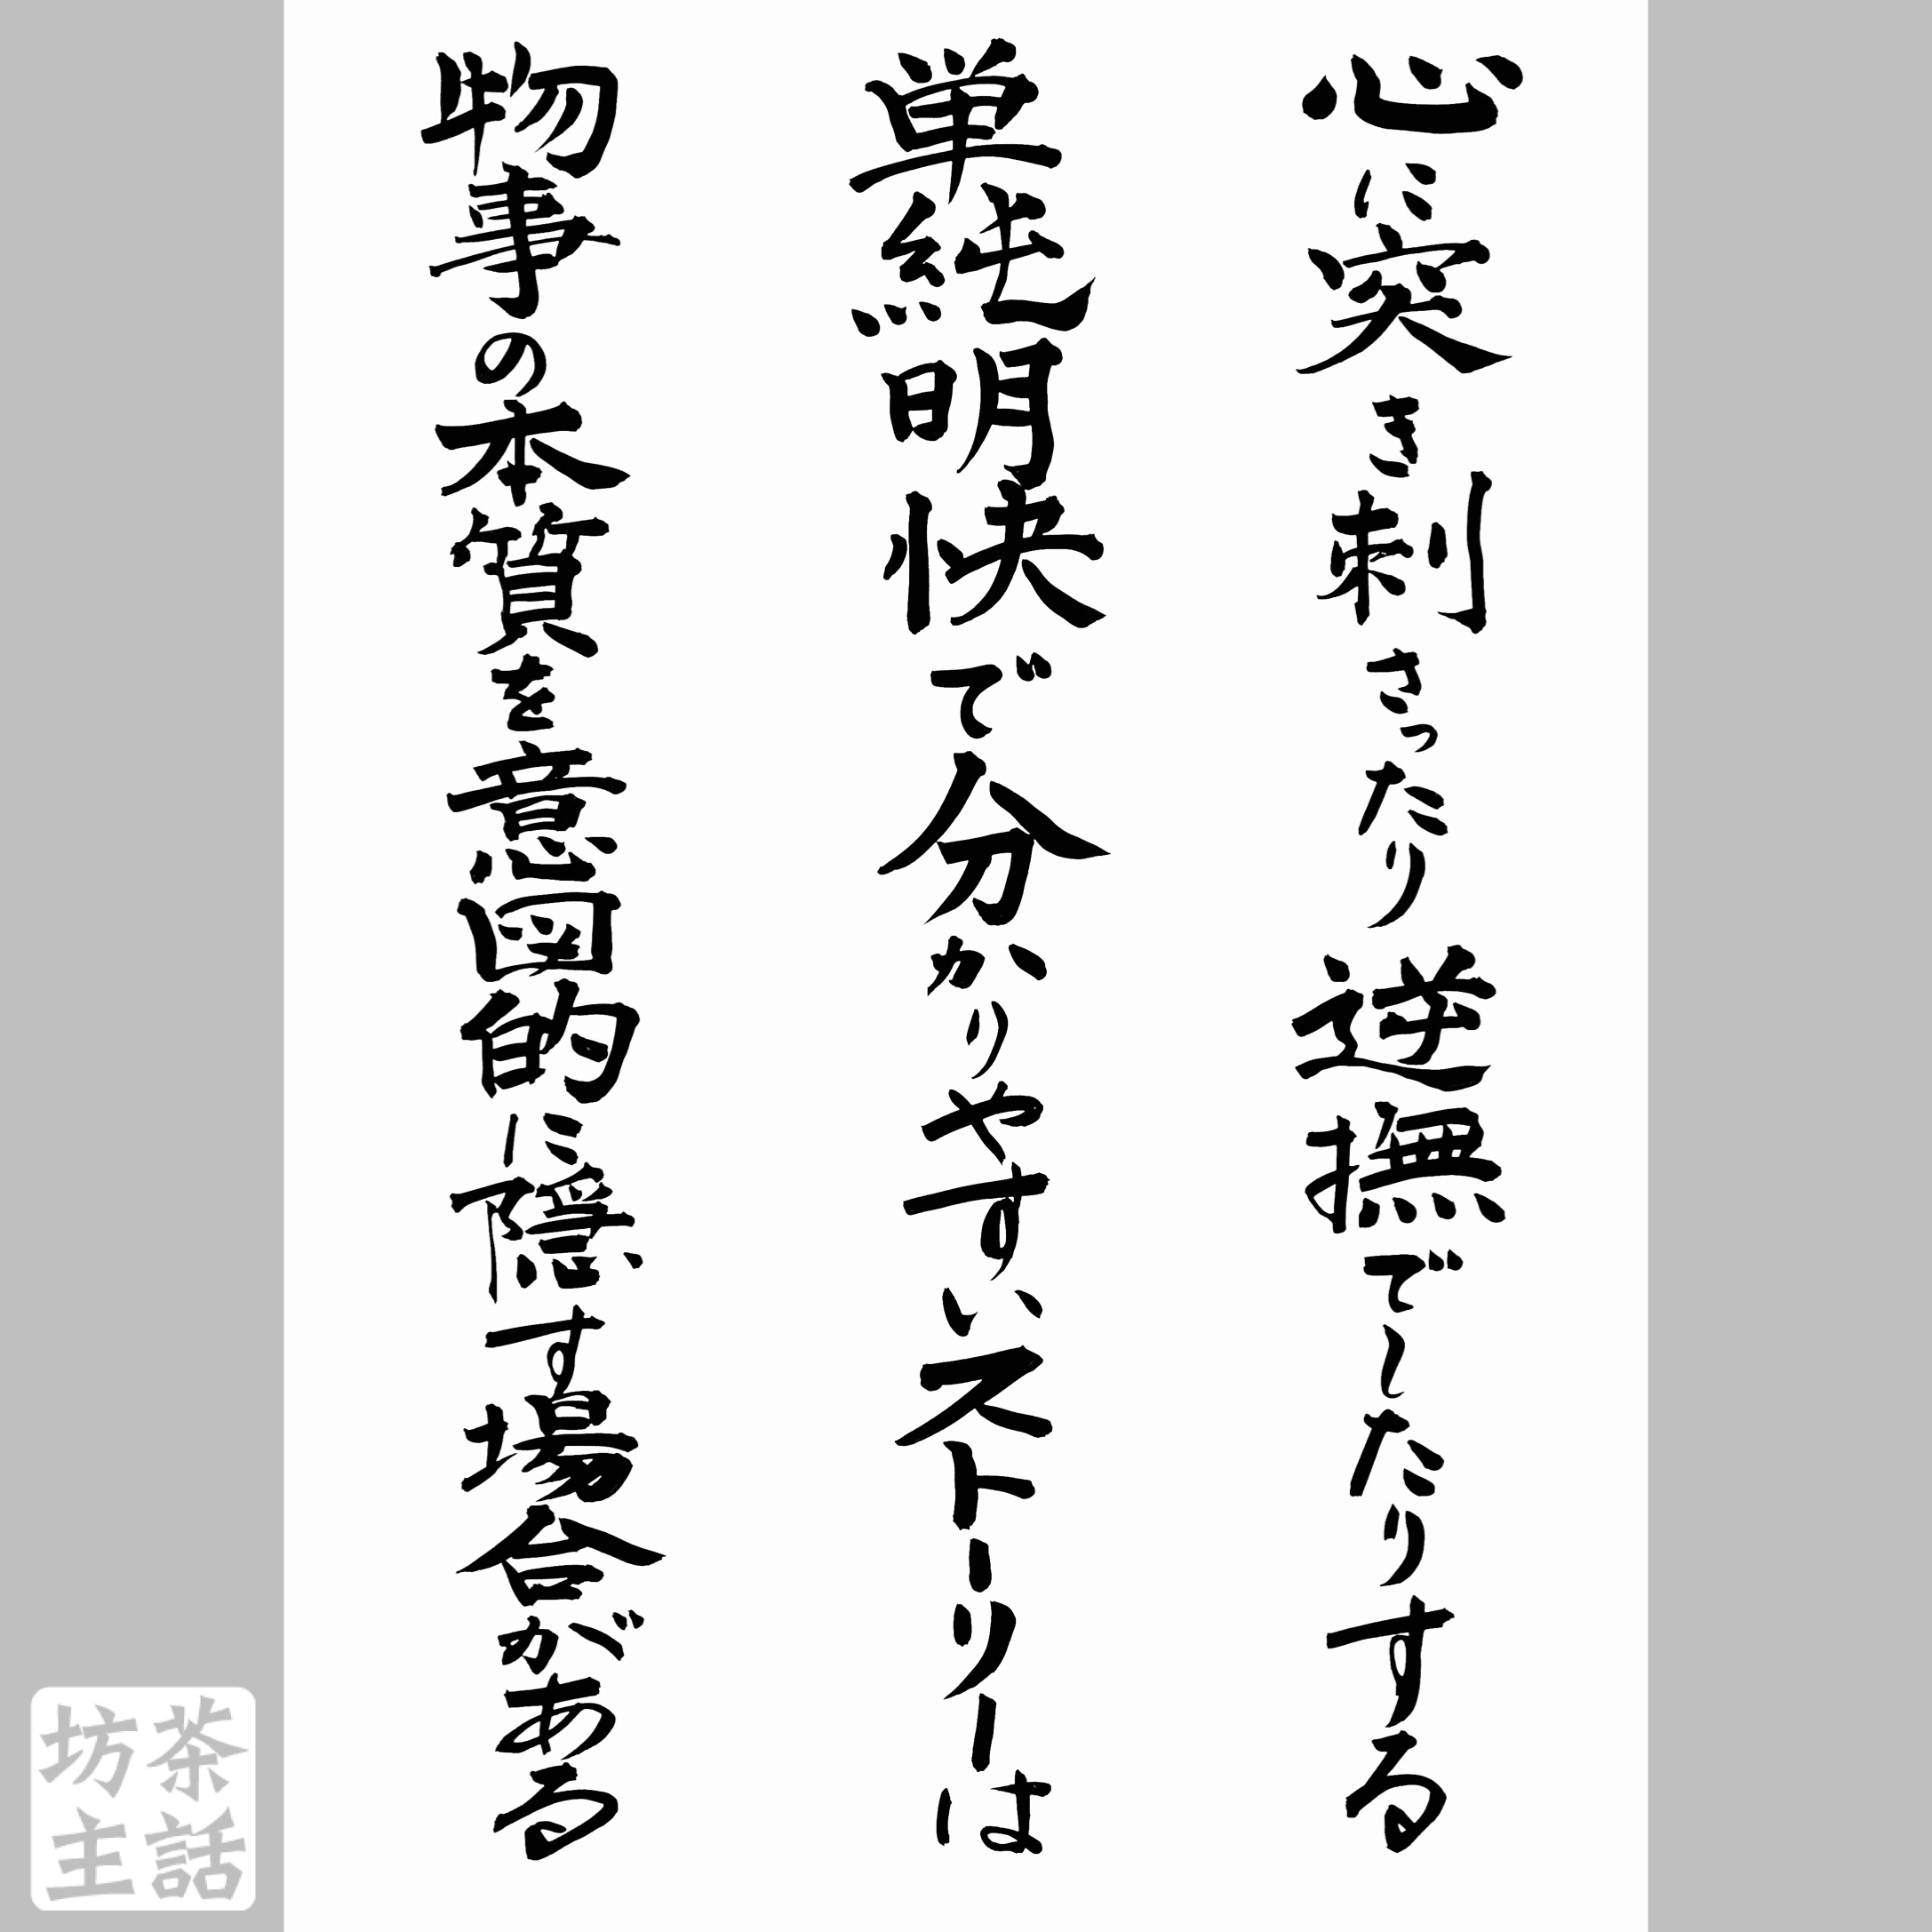 心に突き刺さったり逆撫でしたりする
単純明快で分かりやすいストーリーは
物事の本質を意図的に隠す場合がある
茶話
坊主